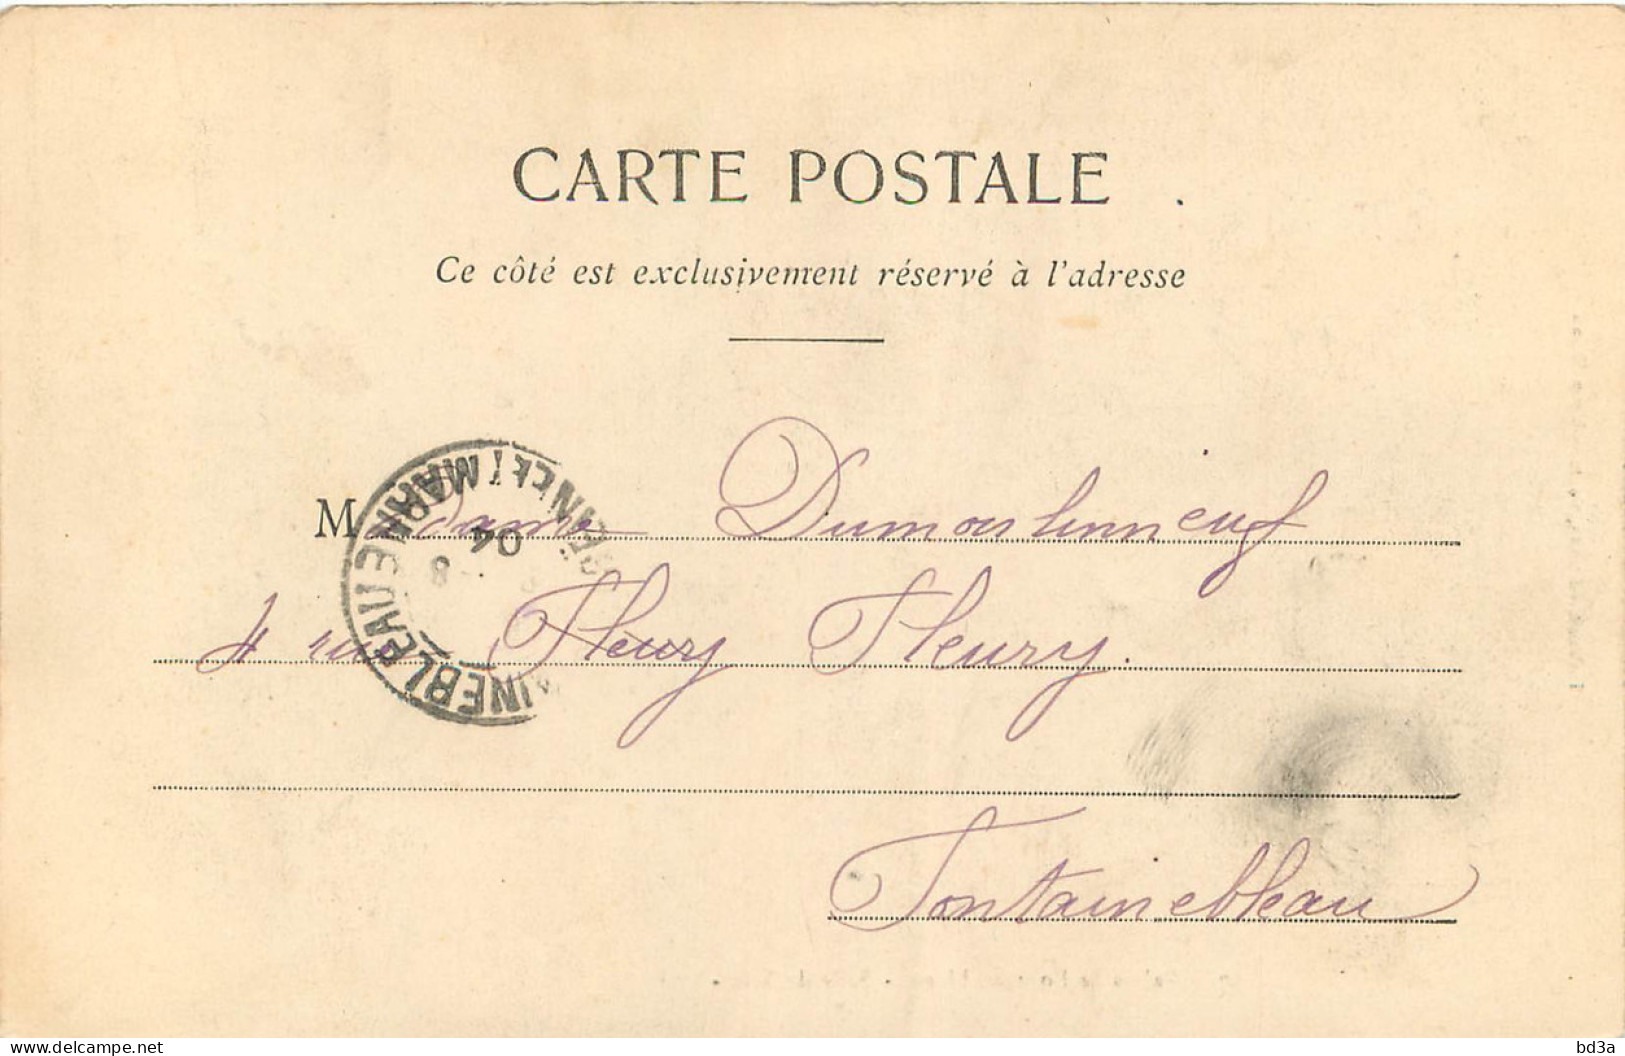 CARTE POSTALE
Ce côté est exclusivement réservé à l'adresse
Madame
4 rue Fleury Fleury.
Fontainebleau
04
8
www.delcampe.net
bd3a